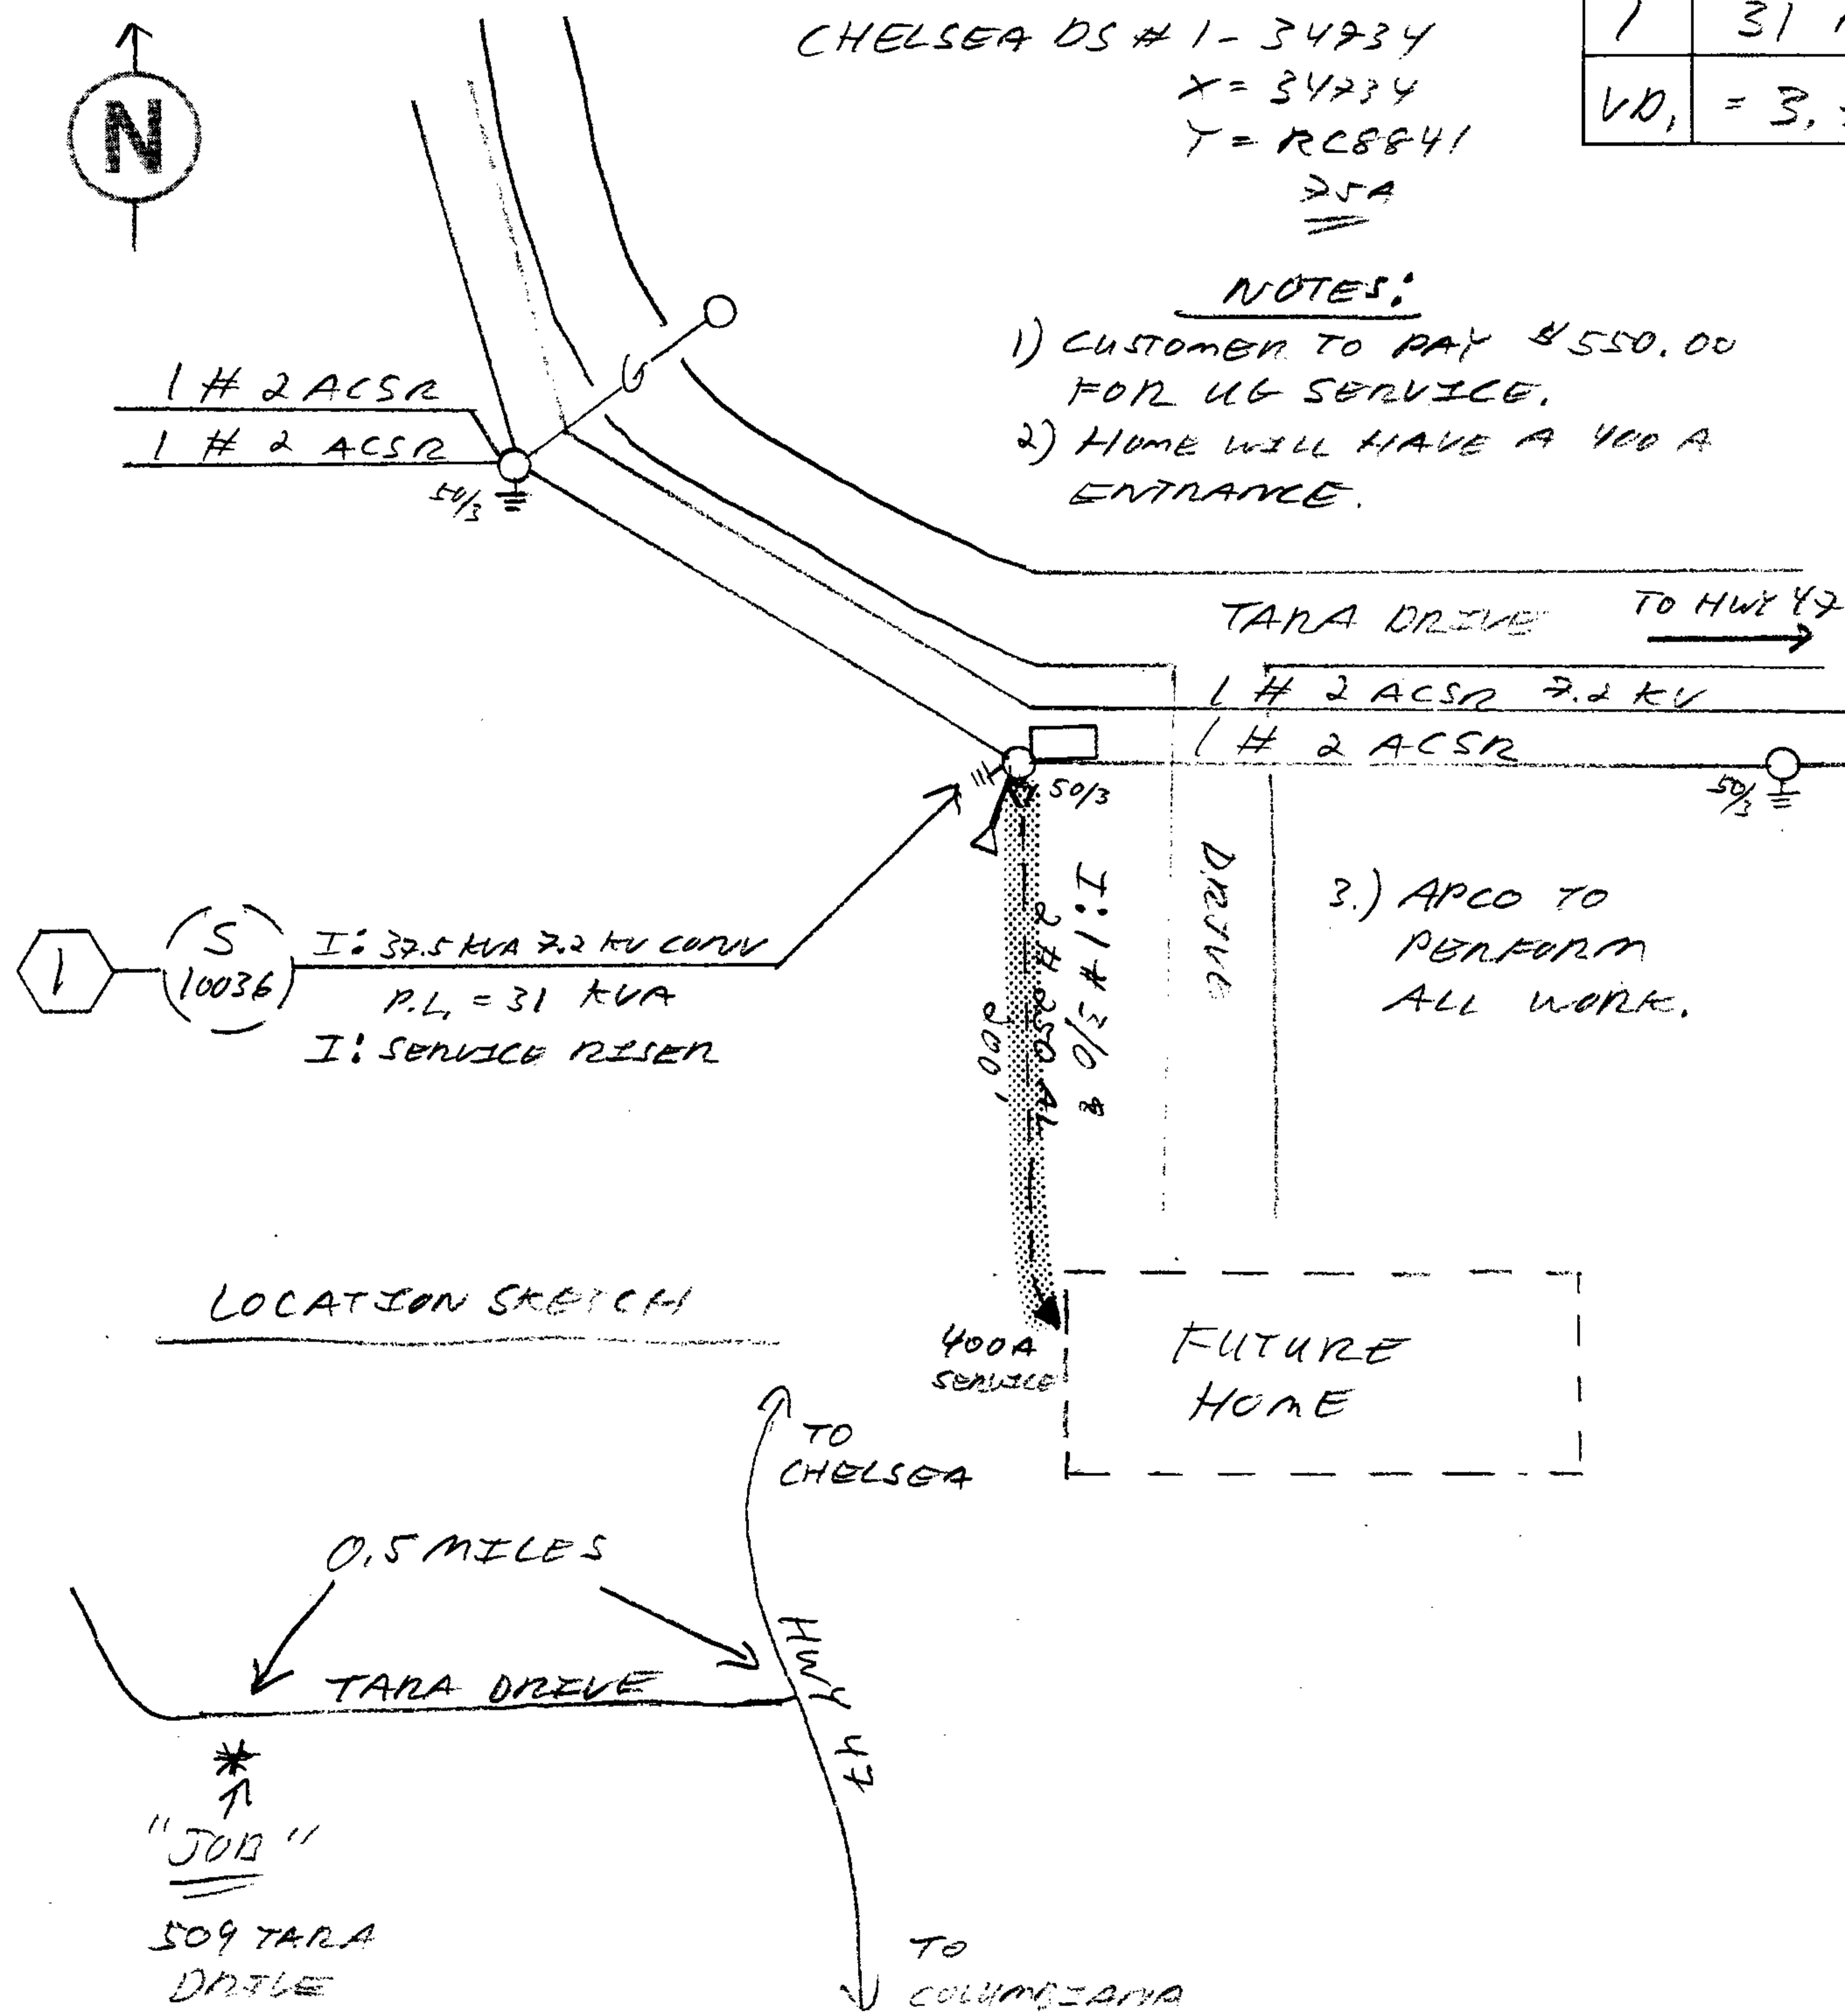 N
CHELSEA DS # 1 - 34734
X = 34734
Y = RC8841
25A
1 31
VD, = 3.
NOTES:
1) CUSTOMER TO PAY $550.00
FOR UG SERVICE.
2) HOME WILL HAVE A 400 A
ENTRANCE.
1 # 2 ACSR
1 # 2 ACSR
50/3
G
TARA DRIVE
TO HWY 47
1 # 2 ACSR 7.2 KV
1 # 2 ACSR
50/3
50/3
DRIVE
3.) APCO TO
PERFORM
ALL WORK.
1
S
10036
I: 37.5 KVA 7.2 KV CONV
P.L. = 31 KVA
I: SERVICE RISER
I: 1 # 3/0 &
2 # 250 AL
200'
400A
SERVICE
FUTURE
HOME
LOCATION SKETCH
TO
CHELSEA
0.5 MILES
TARA DRIVE
HWY 47
"JOB"
509 TARA
DRIVE
TO
COLUMBIANA